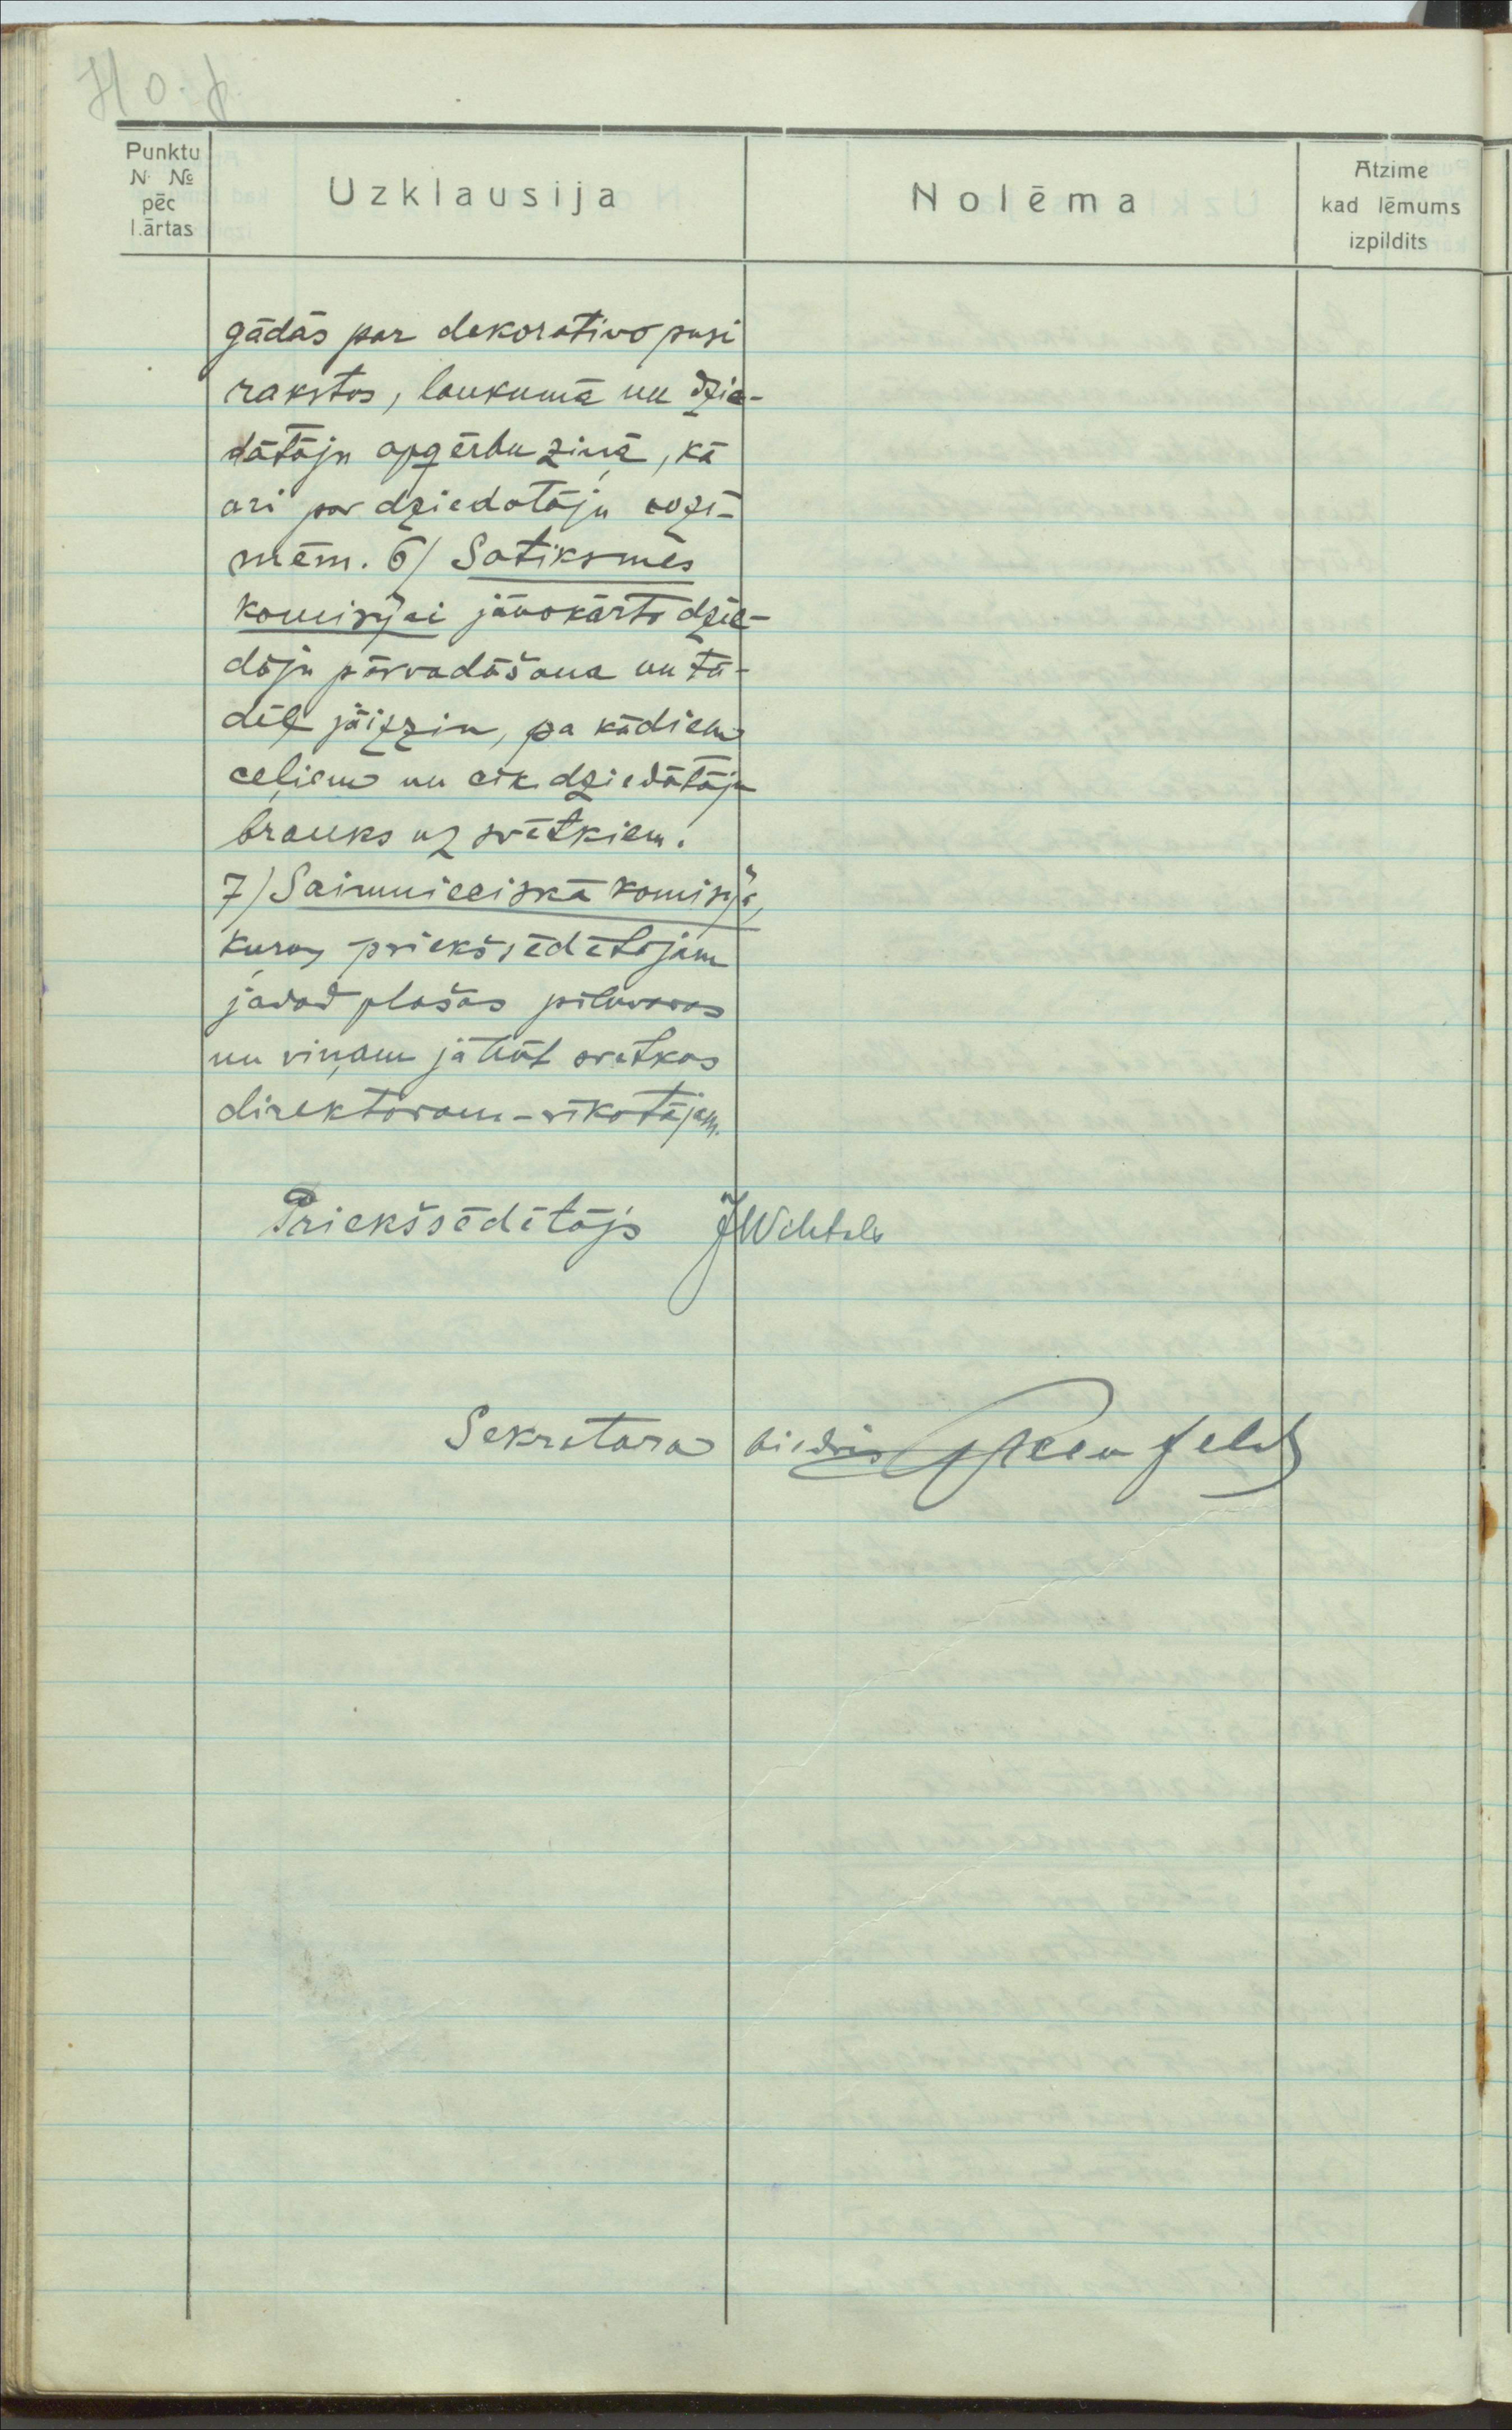 Punktu
N. №
pēc
l.ārtas
Uzklausija
Nolēma
Atzime
kad lēmums
izpildits
gādās par dekorativo pusi
rakstos, laukumā un dzie-
dātāju apģērbu ziņā, kā
ari par dziedatāju nozī-
mēm. 6/ Satiksmes
komisijai jānokārto dzie-
dāju pārvadāšana un tā-
dēļ jāizzin, pa kādiem
ceļiem un cik dziedātāju
brauks uz svētkiem.
7) Saimnieciskā komisija,
kuras priekšsēdētājam
jadod plašas pilnvaras
un viņam jābūt svētkos
direktoram-rīkotājam.
Priekšsēdētājs
Sekretara biedris